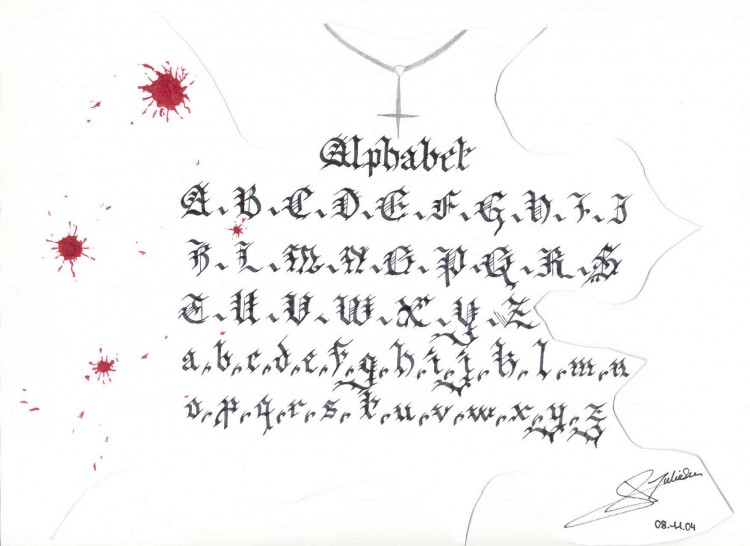 Alphabet
A.B.C.D.E.F.G.H.I.J
K.L.M.N.O.P.Q.R.S
T.U.V.W.X.Y.Z
a,b,c,d,e,f,g,h,i,j,k,l,m,n
o,p,q,r,s,t,u,v,w,x,y,z
08.11.04